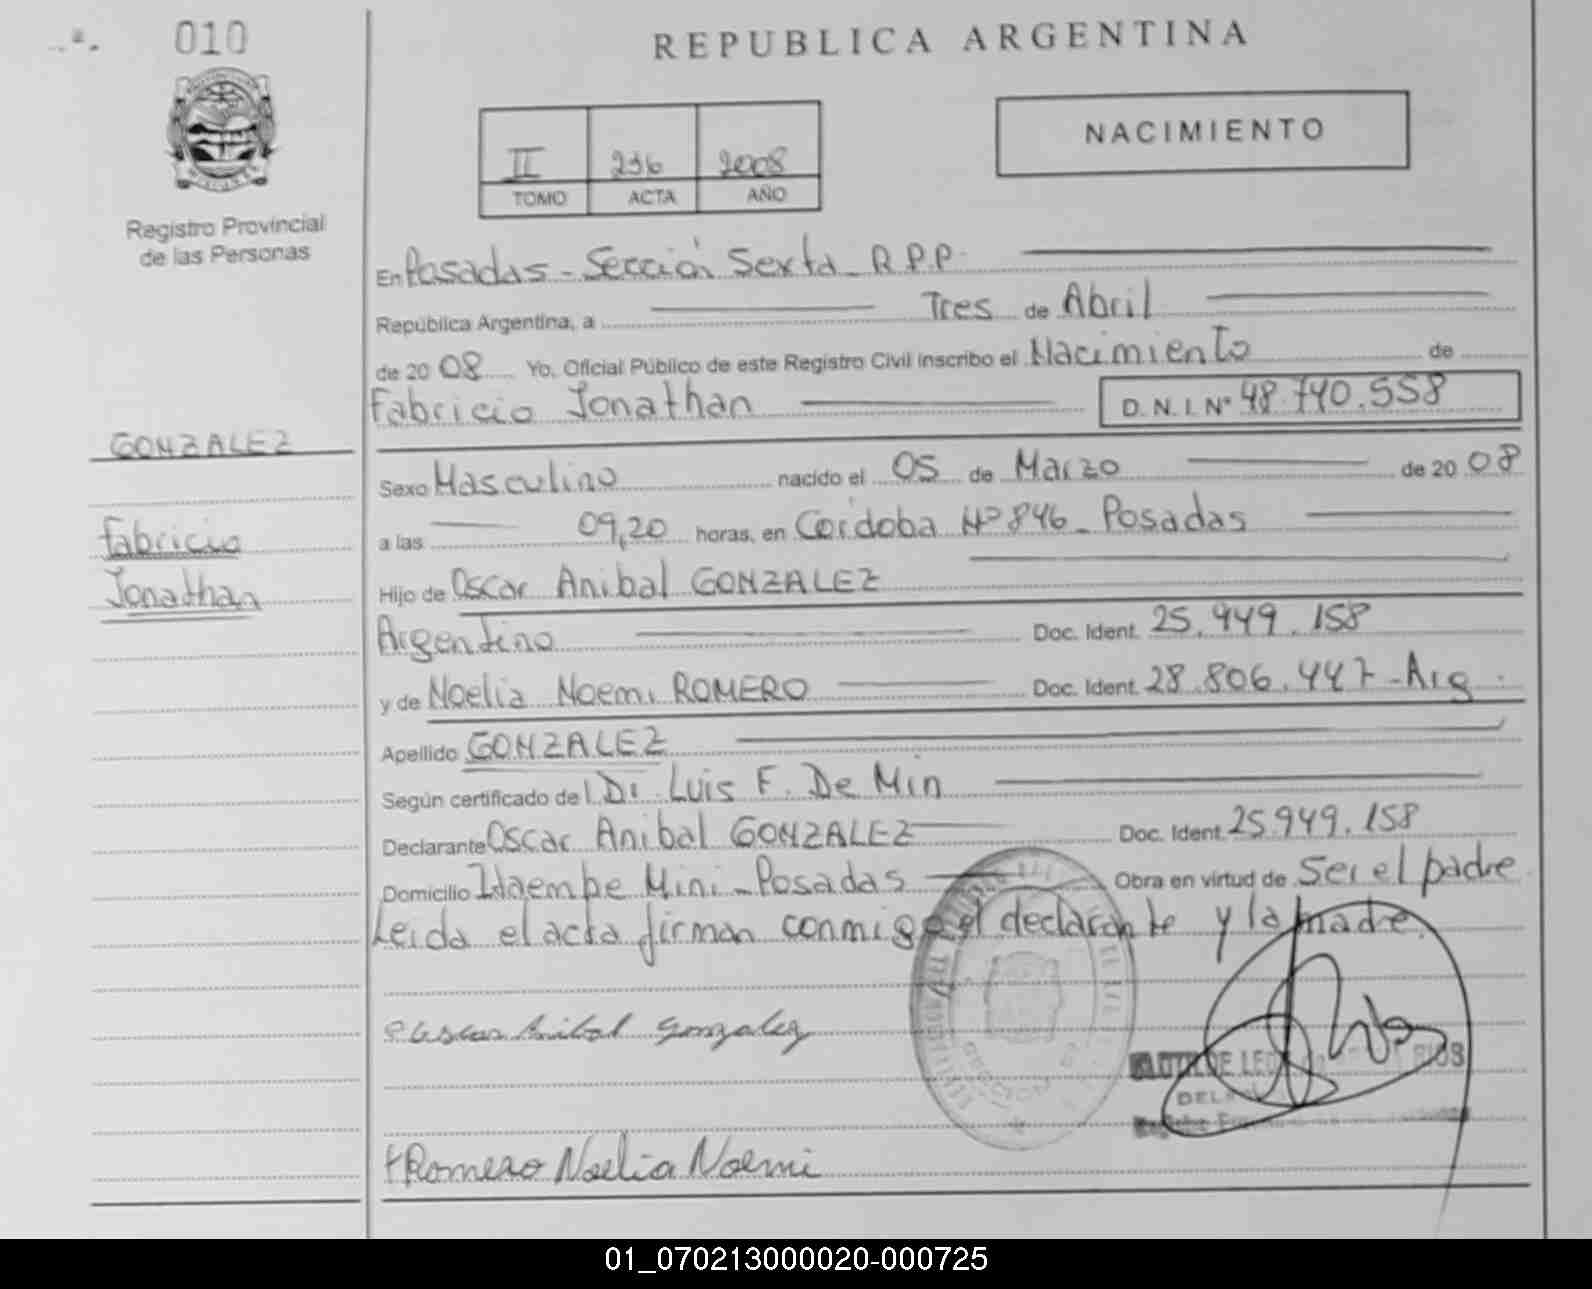 010
REPUBLICA ARGENTINA
NACIMIENTO
II 236 2008
TOMO ACTA AÑO
Registro Provincial
de las Personas
En Posadas - Sección Sexta - R.P.P.
República Argentina, a Tres de Abril
de 2008 Yo, Oficial Público de este Registro Civil inscribo el Nacimiento de
Fabricio Jonathan D.N.I. Nº 48.740.558
GONZALEZ
Fabricio
Jonathan
Sexo Masculino nacido el 05 de Marzo de 2008
a las 09,20 horas, en Cordoba Nº 846 - Posadas
Hijo de Oscar Anibal GONZALEZ
Argentino Doc. Ident. 25.949.158
y de Noelia Noemi ROMERO Doc. Ident. 28.806.447 - Arg.
Apellido GONZALEZ
Según certificado del Dr. Luis F. De Min
Declarante Oscar Anibal GONZALEZ Doc. Ident. 25.949.158
Domicilio Itaembe Mini - Posadas Obra en virtud de Ser el padre
Leida el acta firman conmigo el declarante y la madre.
Oscar Anibal Gonzalez
Romero Noelia Noemi
01_070213000020-000725